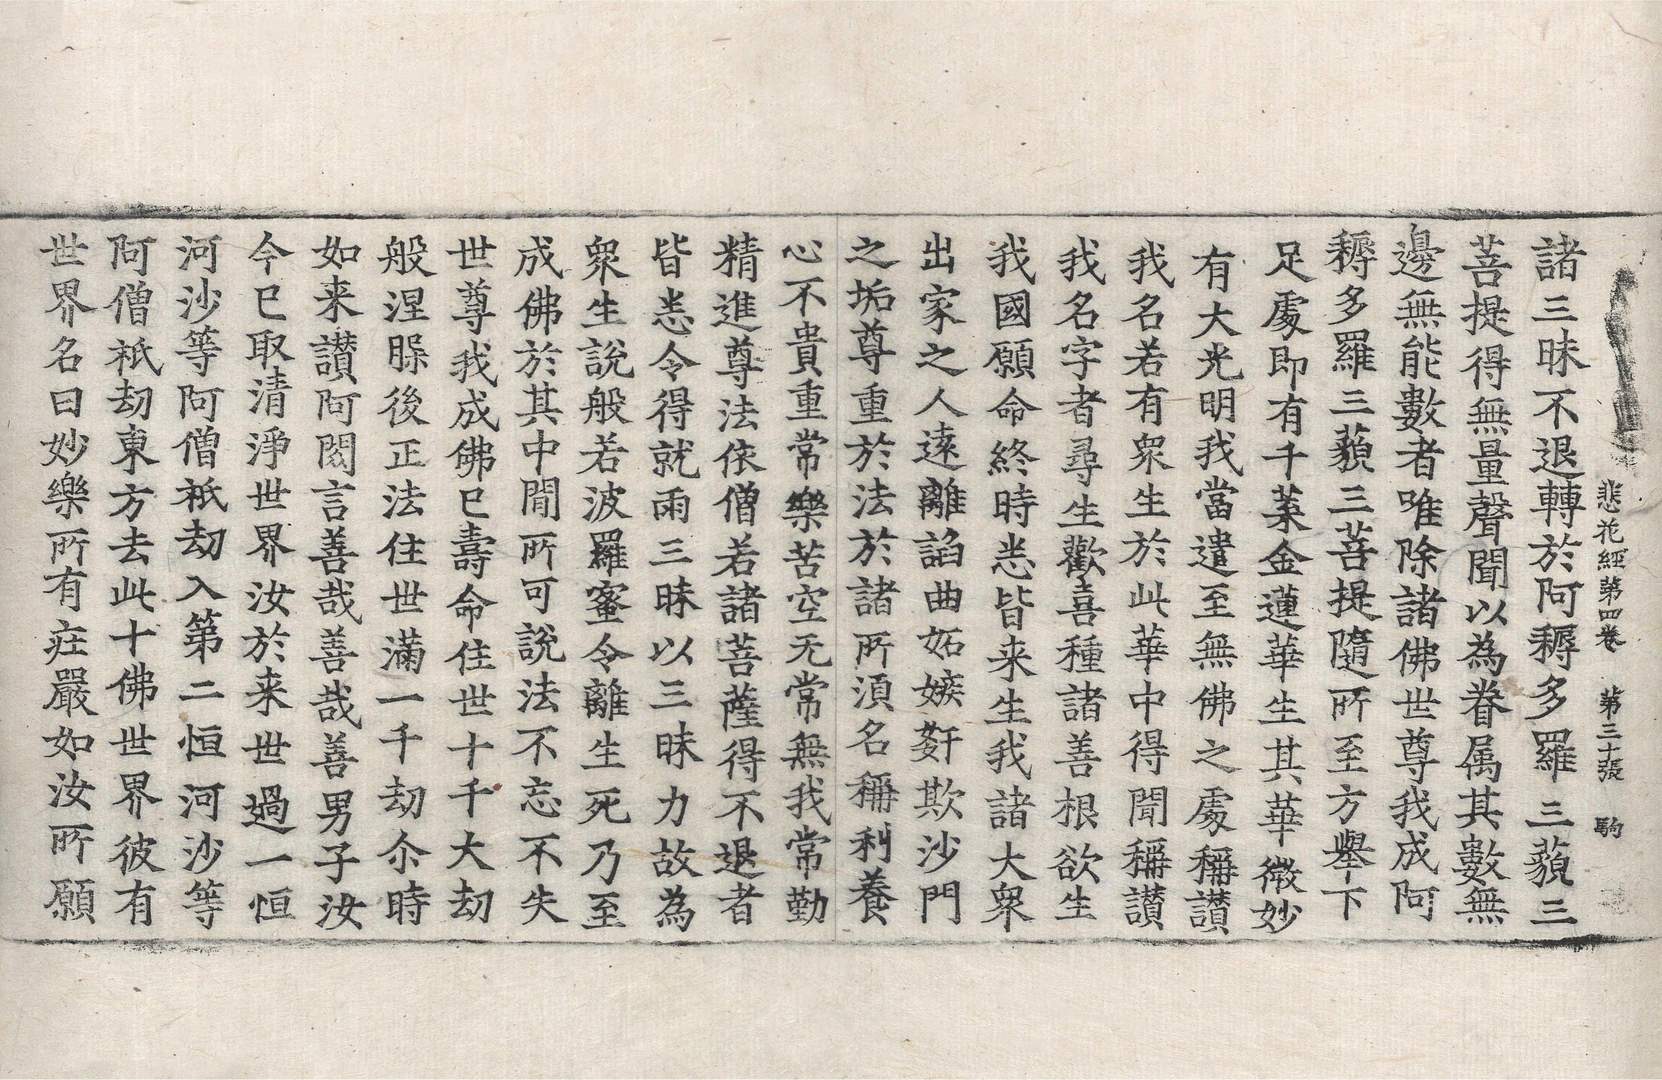 悲花經第四卷 第三十張 駒
諸三昧不退轉於阿耨多羅三藐三
菩提得無量聲聞以為眷属其數無
邊無能數者唯除諸佛世尊我成阿
耨多羅三藐三菩提隨所至方舉下
足處即有千葉金蓮華生其華微妙
有大光明我當遣至無佛之處稱讃
我名若有衆生於此華中得聞稱讃
我名字者尋生歡喜種諸善根欲生
我國願命終時悉皆来生我諸大衆
出家之人遠離諂曲妬嫉姧欺沙門
之垢尊重於法於諸所湏名稱利養
心不貴重常樂苦空无常無我常勤
精進尊法依僧若諸菩薩得不退者
皆悉令得就雨三昧以三昧力故為
衆生說般若波羅蜜令離生死乃至
成佛於其中閒所可說法不忘不失
世尊我成佛已壽命住世十千大劫
般涅槃後正法住世滿一千劫尒時
如来讃阿閦言善哉善哉善男子汝
今已取清淨世界汝於来世過一恒
河沙等阿僧祇劫入第二恒河沙等
阿僧祇劫東方去此十佛世界彼有
世界名曰妙樂所有莊嚴如汝所願